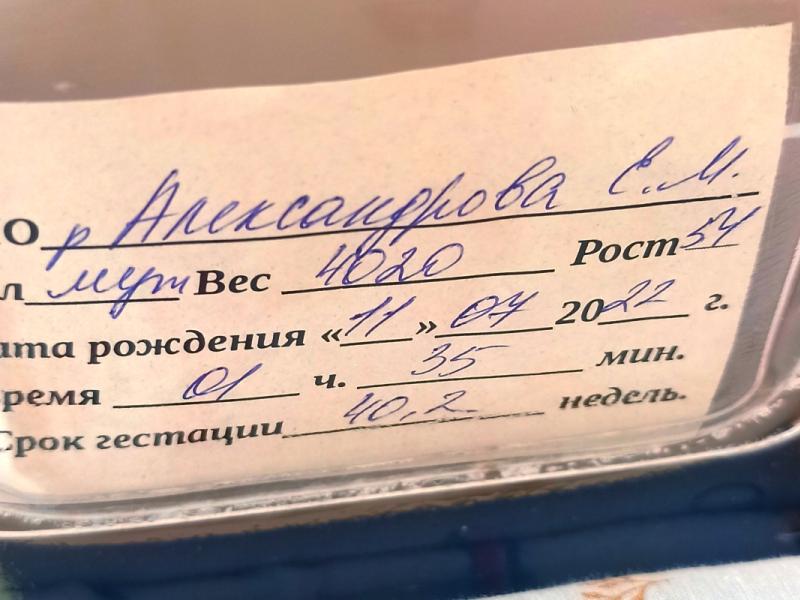 О р Александрова Е.М.
л муж Вес 4020 Рост 54
ата рождения «11» 07 2022 г.
ремя 01 ч. 35 мин.
Срок гестации 40,2 недель.